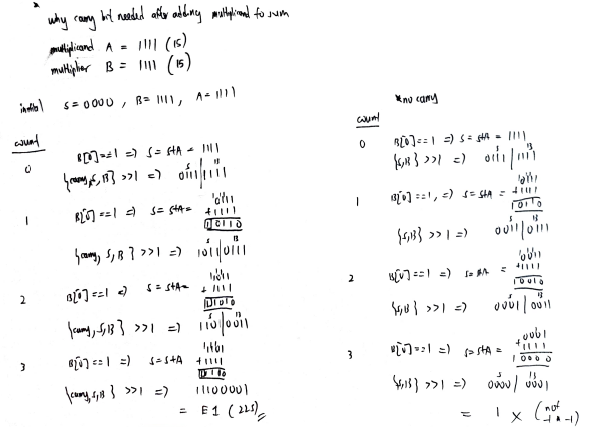 * why carry bit needed after adding multiplicand to sum
multiplicand A = 1111 (15)
multiplier B = 1111 (15)
initial S = 0000 , B = 1111 , A = 1111
count
0 B[0] == 1 => S = S+A = 1111
{carry, S, B} >> 1 => 0111 | 1111
1 B[0] == 1 => S = S+A = 0111
+1111
10110
{carry, S, B} >> 1 => 1011 | 0111
2 B[0] == 1 => S = S+A = 1011
+1111
11010
{carry, S, B} >> 1 => 1101 | 0011
3 B[0] == 1 => S = S+A 1101
+1111
11100
{carry, S, B} >> 1 => 11100001
= E1 (225)
* no carry
count
0 B[0] == 1 => S = S+A = 1111
S B
{S,B} >> 1 => 0111 | 1111
1 B[0] == 1 , => S = S+A = 0111
+1111
10110
S B
{S,B} >> 1 => 0011 | 0111
2 B[0] == 1 => S = S+A = 0011
+1111
10010
S B
{S,B} >> 1 => 0001 | 0011
3 B[0] == 1 => S = S+A = 0001
+1111
10000
S B
{S,B} >> 1 => 0000 / 0001
= 1 X (not